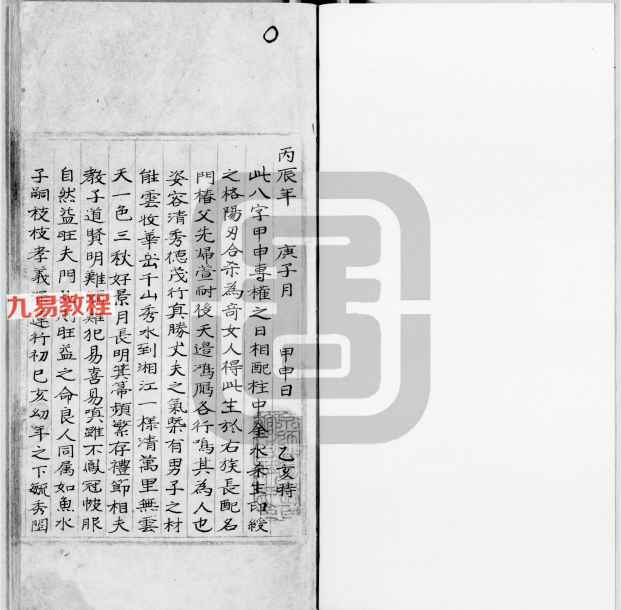 丙辰年 庚子月 甲申日 乙亥時
此八字甲申專權之日相配柱中金水柔生印綬
之格陽刃合杀為奇女人得此生於右族長配名
門椿父先歸萱耐後天邊鴻鴈各行鳴其為人也
姿容清秀德茂行真勝丈夫之氣槩有男子之材
能雲收華岳千山秀水到湘江一樣清萬里無雲
天一色三秋好景月長明箕箒頻繁存禮節相夫
教子道賢明難難犯易喜易嗔雖不鳳冠帔服
自然益旺夫門旺益之命良人同屬如魚水
子嗣枝枝孝義運行初己亥幼年之下毓秀閨
九易教程